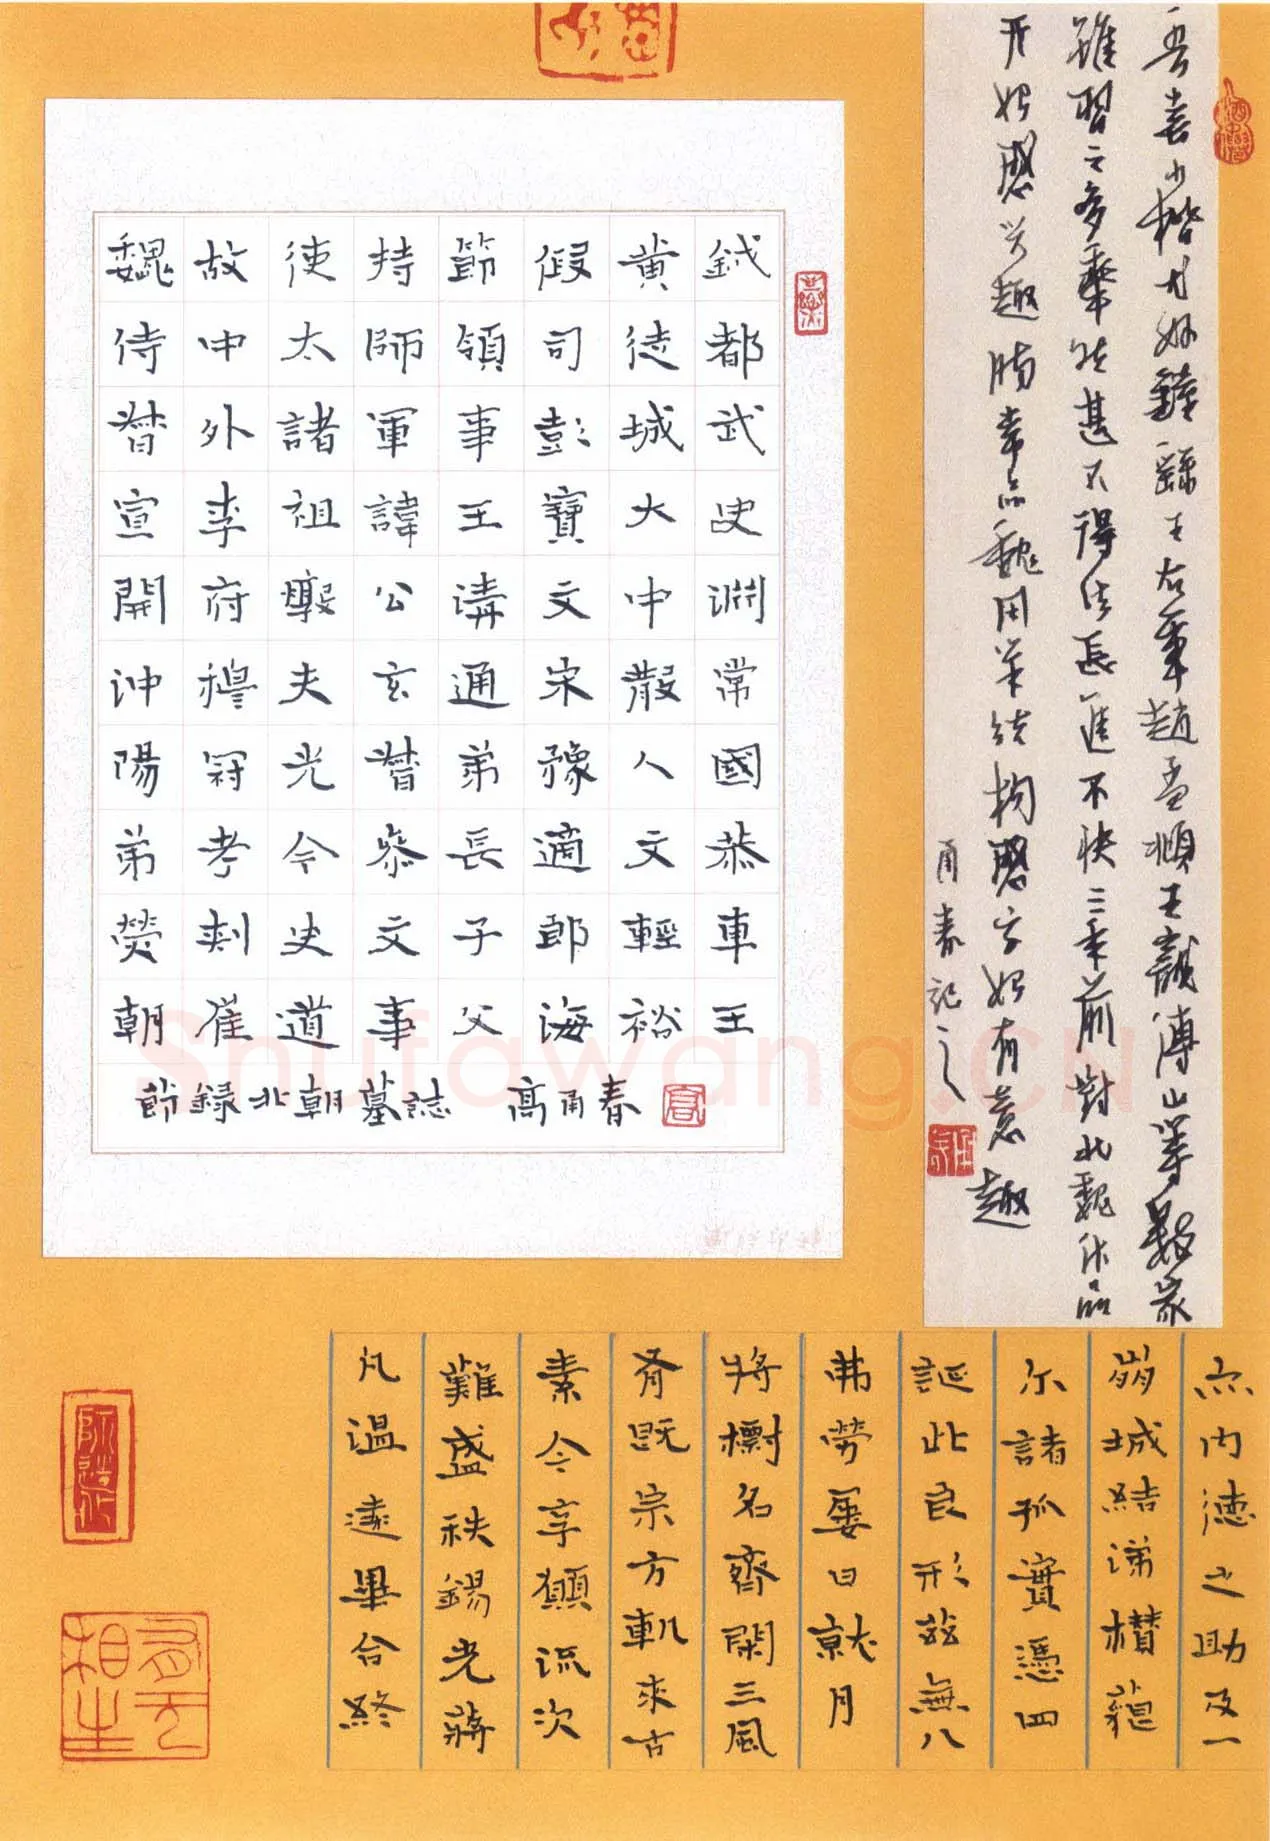 吾喜小楷尤好鍾繇王右軍趙孟頫王寵傅山等數家
雖習之多年然甚不得法長進不快三年前對北魏作品
开始感兴趣臨章品魏用筆結構磨字始有意趣
甬春記之
魏故使持節假黄鉞
侍中太師領司徒都
督外諸軍事彭城武
宣李祖諱王寶大史
開府公溝文中淵
沖穆夫玄通宋散常
陽冠光督弟豫人國
弟考令恭長適文恭
熒刺史文子郎輕車
朝崔道事父海裕王
節録北朝墓誌 高甬春
亦内德之助及一
崩城結涕欑
尔諸孤實憑四
誕此良形茲無八
弗勞屢日就月
將檦名齊閑三風
脊既宗方軌來古
素令享願流次
難盛秩錫光蔣
凡温遠畢合終
有无相生
Shufawang.CN